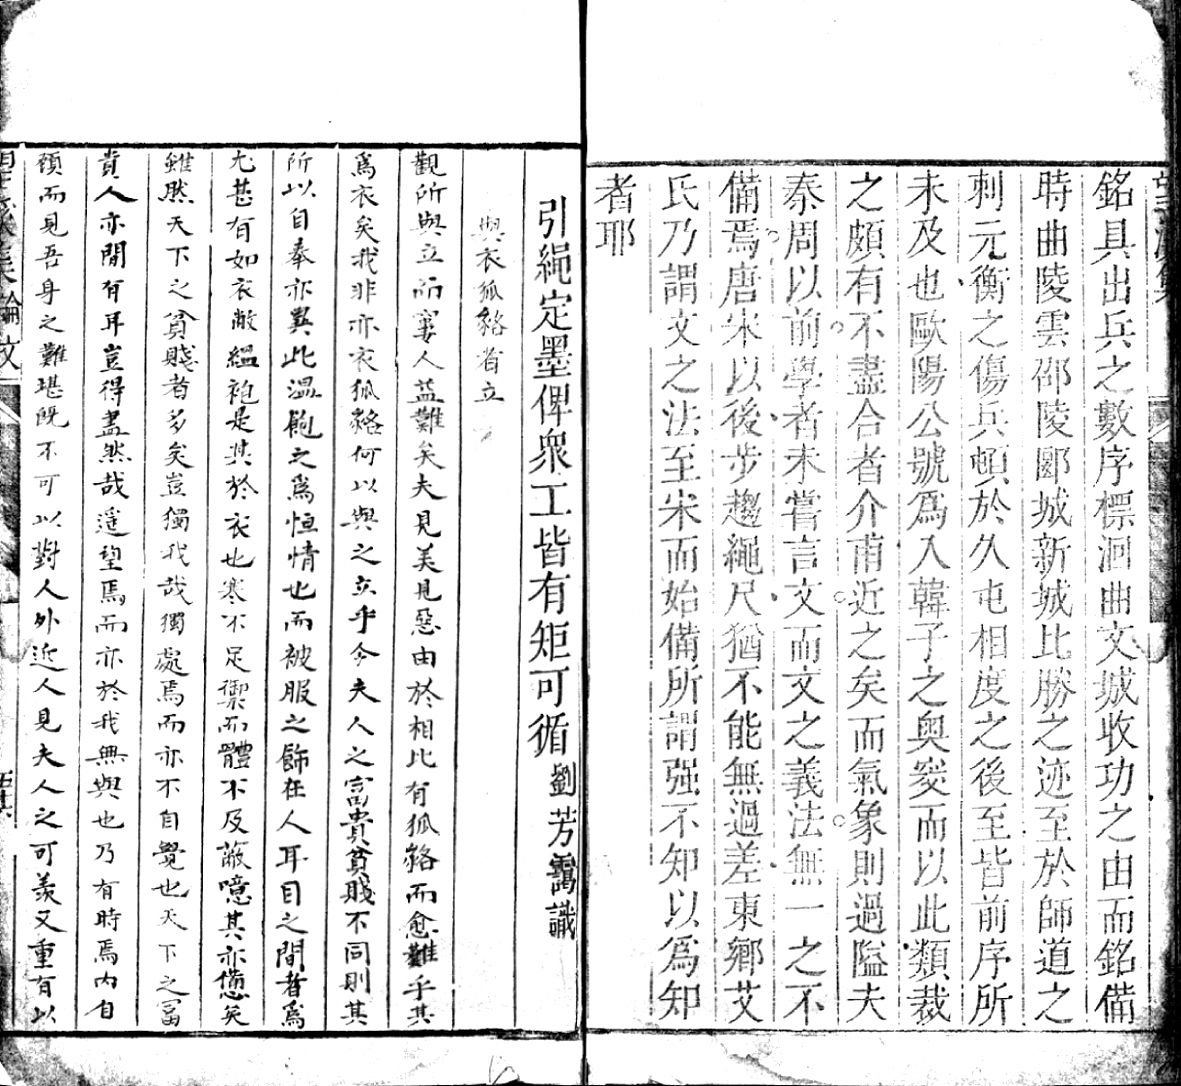 銘具出兵之數序標洄曲文城收功之由而銘備
時曲陵雲邵陵郾城新城比勝之迹至於師道之
刺元衡之傷兵頓於久屯相度之後至皆前序所
未及也歐陽公號爲入韓子之奥窔而以此類裁
之頗有不盡合者介甫近之矣而氣象則過隘夫
秦周以前學者未嘗言文而文之義法無一之不
備焉唐宋以後步趨繩尺猶不能無過差東鄉艾
氏乃謂文之法至宋而始備所謂强不知以爲知
者耶
引繩定墨俾衆工皆有矩可循 劉芳靄識
與衣狐貉者立
觀所與立而寠人益難矣夫見美見惡由於相比有狐貉而愈難乎其
爲衣矣我非亦衣狐貉何以與之立乎今夫人之富貴貧賤不同則其
所以自奉亦異此溫飽之爲恒情也而被服之飾在人耳目之間者爲
尤甚有如衣敝縕袍是其於衣也寒不足禦而體不及蔽噫其亦憊矣
雖然天下之貧賤者多矣豈獨我哉獨處焉而亦不自覺也天下之富
貴人亦閒有耳豈得盡然哉遥望焉而亦於我無與也乃有時焉內自
顧而見吾身之難堪旣不可以對人外近人見夫人之可羨又重有以